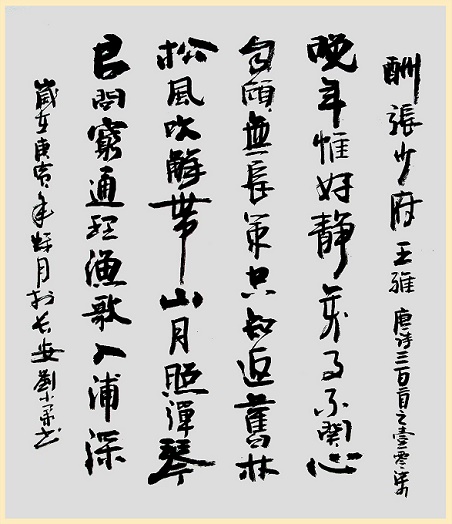 酬張少府 王維 唐诗三百首之壹零柒
晚年惟好靜萬事不關心
自顧無長策空知返舊林
松風吹解帶山月照彈琴
君問窮通理漁歌入浦深
歲在庚寅年 月於长安劉小